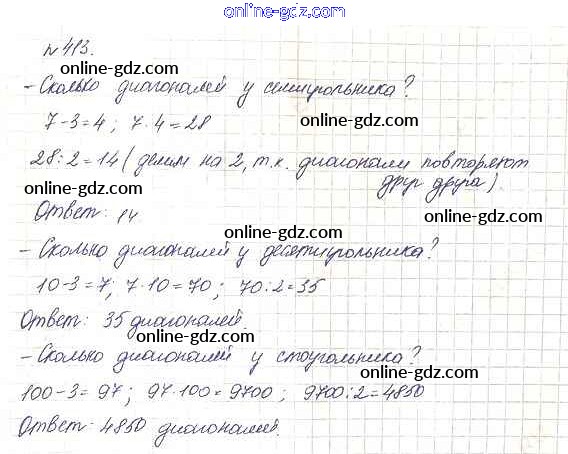 online-gdz.com
№ 413.
online-gdz.com
- Сколько диагоналей у семиугольника?
7-3=4; 7·4=28
online-gdz.com
28:2=14 (делим на 2, т.к. диагонали повторяют
друг друга).
online-gdz.com
online-gdz.com
Ответ: 14
- Сколько диагоналей у десятиугольника?
online-gdz.com
10-3=7; 7·10=70; 70:2=35
Ответ: 35 диагоналей.
online-gdz.com
- Сколько диагоналей у стоугольника?
online-gdz.com
100-3=97; 97·100=9700; 9700:2=4850
Ответ: 4850 диагоналей.
online-gdz.com